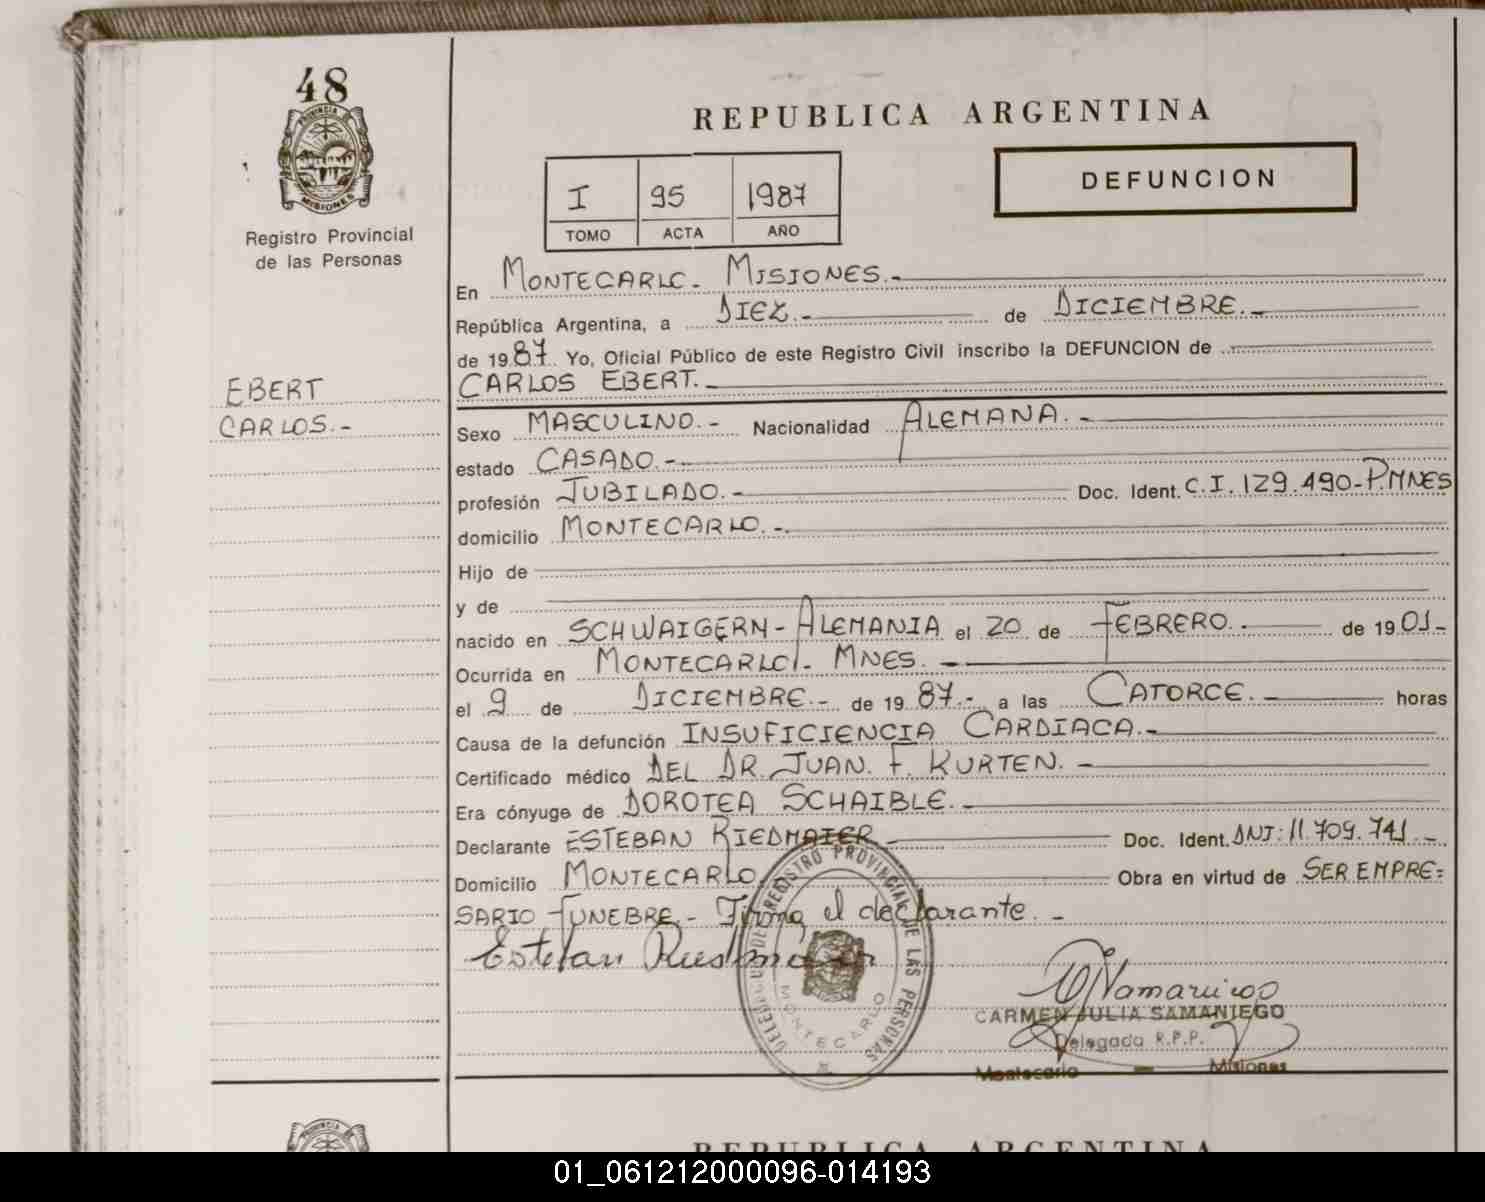 48
PROVINCIA DE
MISIONES
Registro Provincial
de las Personas
EBERT
CARLOS.-
REPUBLICA ARGENTINA
I 95 1987
TOMO ACTA AÑO
DEFUNCION
En MONTECARLO - MISIONES.-
República Argentina, a DIEZ.- de DICIEMBRE.-
de 1987. Yo, Oficial Público de este Registro Civil inscribo la DEFUNCION de
CARLOS EBERT.-
Sexo MASCULINO.- Nacionalidad ALEMANA.-
estado CASADO.-
profesión JUBILADO.- Doc. Ident. C.I. 129.490-P.MNES
domicilio MONTECARLO.-
Hijo de
y de
nacido en SCHWAIGERN-ALEMANIA el 20 de FEBRERO.- de 1901-
Ocurrida en MONTECARLO.- MNES.-
el 9 de DICIEMBRE.- de 1987.- a las CATORCE.- horas
Causa de la defunción INSUFICIENCIA CARDIACA.-
Certificado médico DEL DR. JUAN. F. KURTEN.-
Era cónyuge de DOROTEA SCHAIBLE.-
Declarante ESTEBAN RIEDMAIER.- Doc. Ident. DNI: 11.709.741.-
Domicilio MONTECARLO Obra en virtud de SER EMPRE=
SARIO FUNEBRE.- Firma el declarante.-
Esteban Riedmaier
REGISTRO PROVINCIAL DE LAS PERSONAS
MONTECARLO
CARMEN JULIA SAMANIEGO
Delegada R.P.P.
Montecarlo - Misiones
REPUBLICA ARGENTINA
01_061212000096-014193